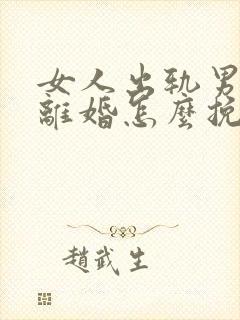 女人出軌男
離婚怎麼挽
趙武生